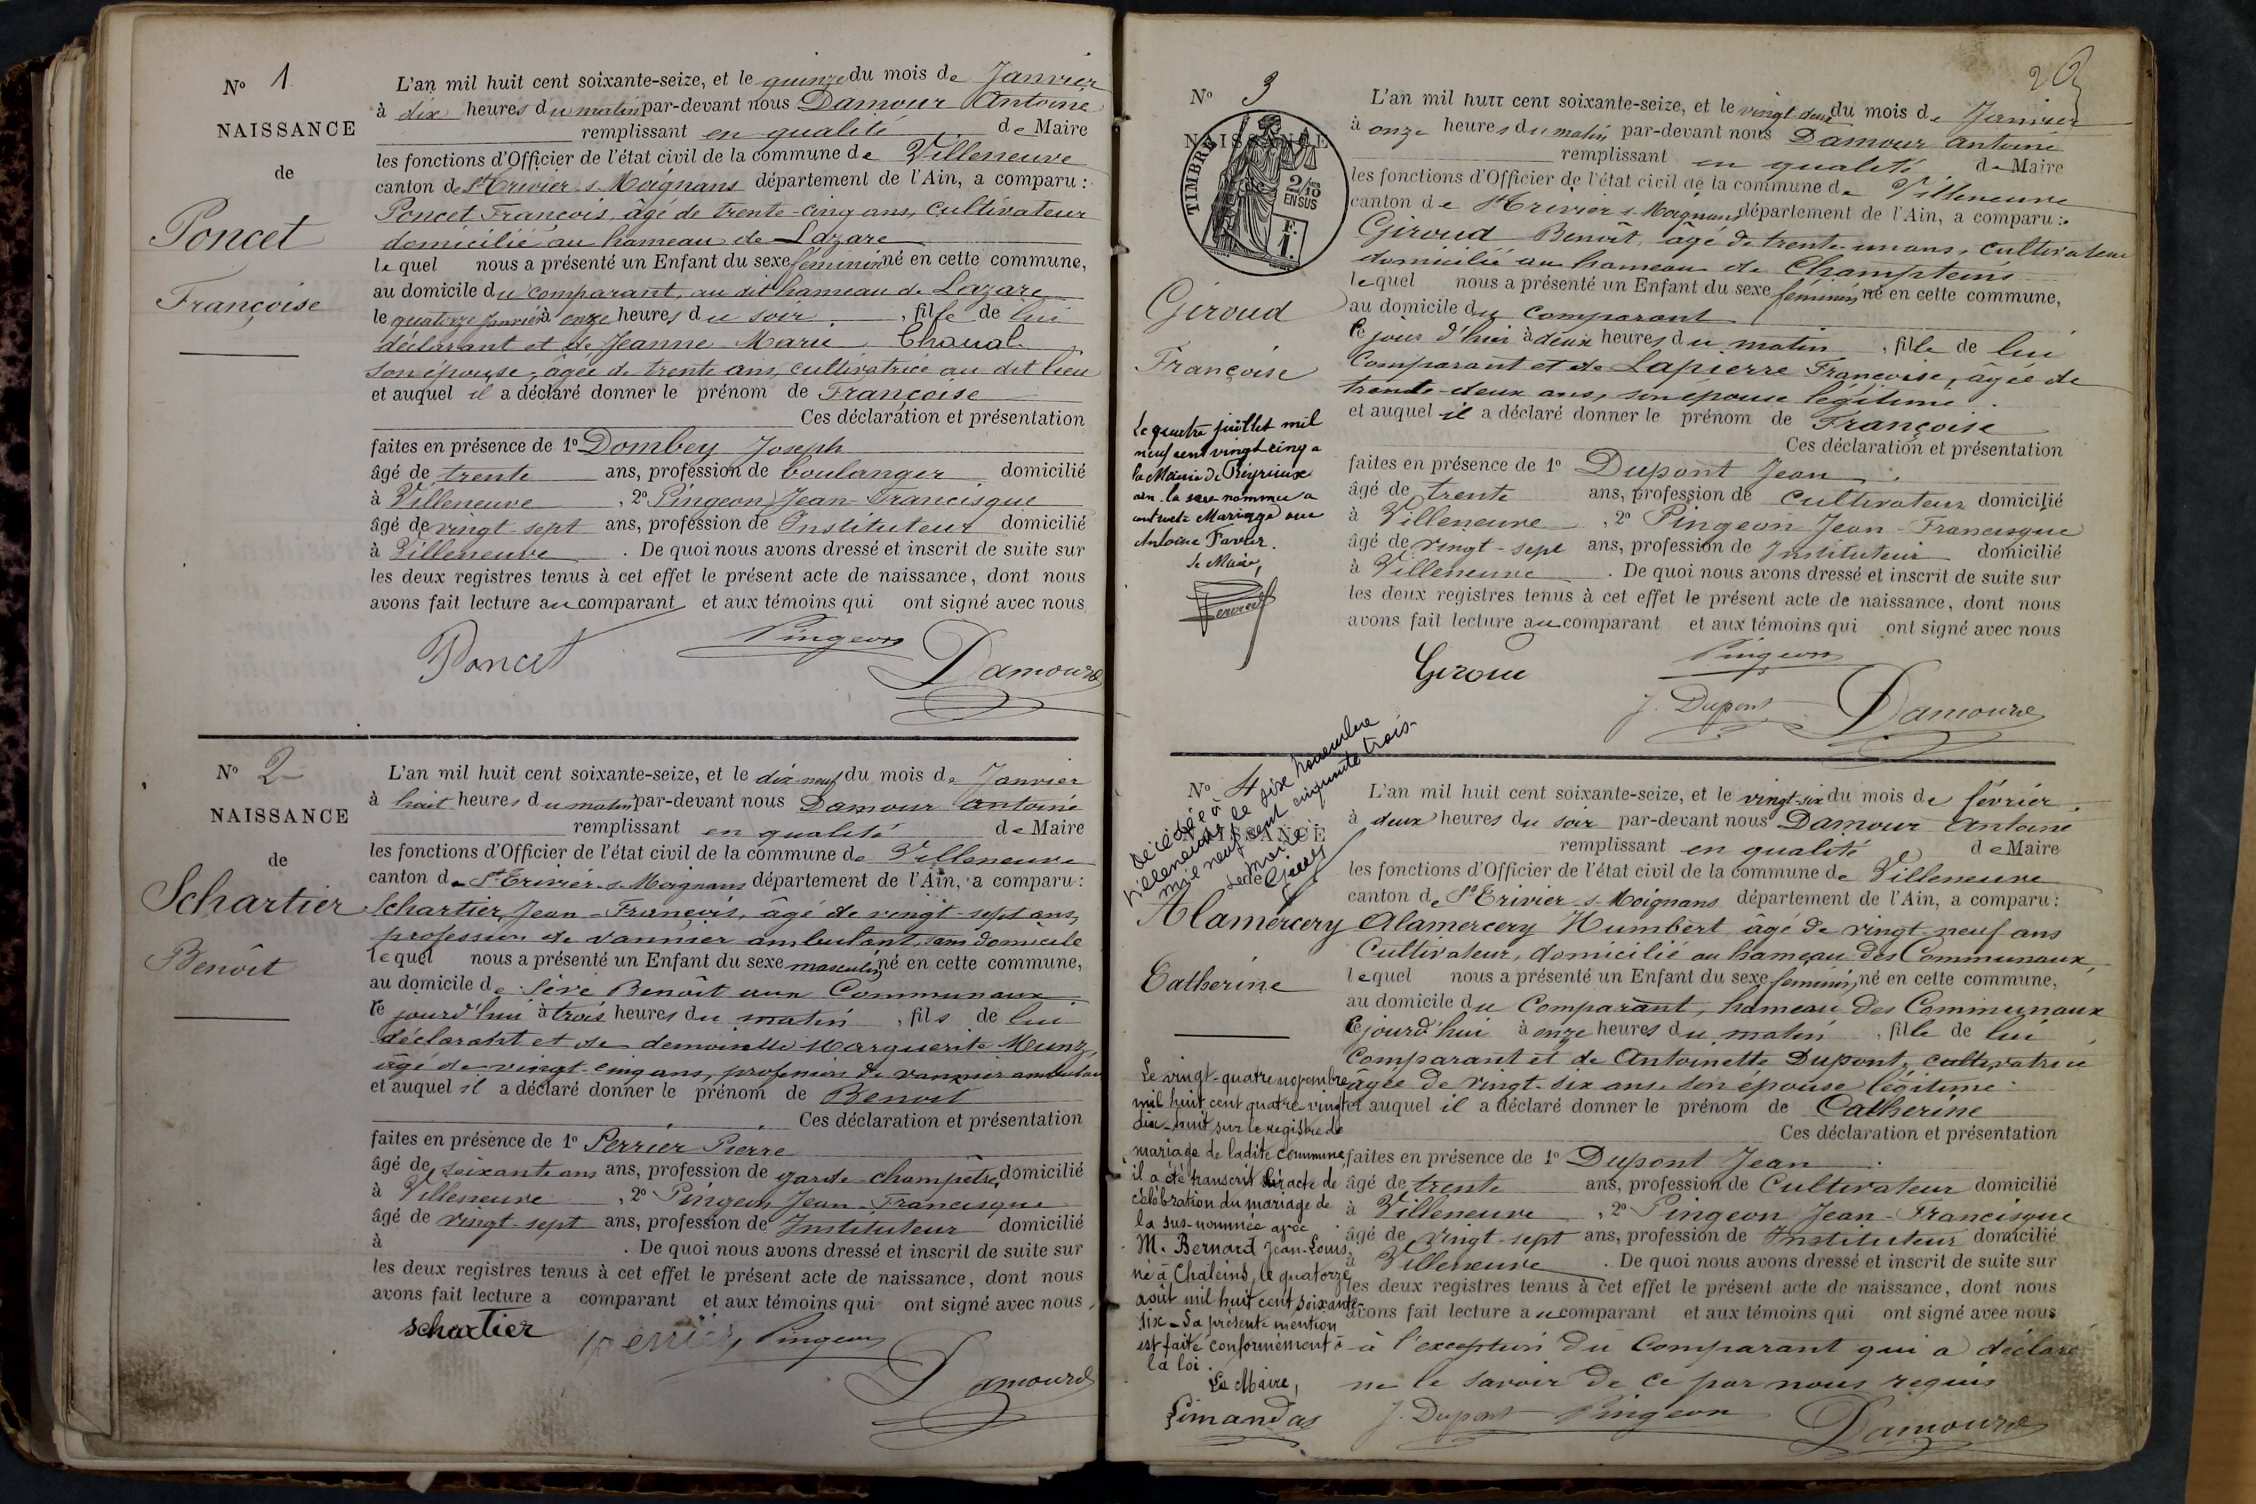 N° 1
NAISSANCE
de
Poncet
Françoise
L'an mil huit cent soixante-seize, et le quinze du mois de Janvier
à dix heures du matin par-devant nous Damour Antoine
remplissant en qualité de Maire
les fonctions d'Officier de l'état civil de la commune de Villeneuve
canton de St Trivier s. Moignans département de l'Ain, a comparu :
Poncet François, âgé de trente-cinq ans, cultivateur
domicilié au hameau de Lazare
lequel nous a présenté un Enfant du sexe féminin né en cette commune,
au domicile du comparant, au dit hameau de Lazare
le quatorze Janvier à onze heures du soir, fille de lui
déclarant et de Jeanne Marie Chaval
son épouse, âgée de trente ans, cultivatrice au dit lieu
et auquel il a déclaré donner le prénom de Françoise
Ces déclaration et présentation
faites en présence de 1° Dombey Joseph
âgé de trente ans, profession de boulanger domicilié
à Villeneuve, 2° Pingeon Jean-Francisque
âgé de vingt-sept ans, profession de Instituteur domicilié
à Villeneuve. De quoi nous avons dressé et inscrit de suite sur
les deux registres tenus à cet effet le présent acte de naissance, dont nous
avons fait lecture au comparant et aux témoins qui ont signé avec nous
Poncet Pingeon Damour
N° 2
NAISSANCE
de
Schartier
Benoît
L'an mil huit cent soixante-seize, et le dix-neuf du mois de Janvier
à huit heures du matin par-devant nous Damour Antoine
remplissant en qualité de Maire
les fonctions d'Officier de l'état civil de la commune de Villeneuve
canton de St Trivier-s-Moignans département de l'Ain, a comparu :
Schartier Jean-François, âgé de vingt-sept ans,
profession de vannier ambulant, sans domicile
lequel nous a présenté un Enfant du sexe masculin né en cette commune,
au domicile de Sève Benoît aux Communaux
ce jourd'hui à trois heures du matin, fils de lui
déclarant et de demoiselle Marguerite Munz,
âgé de vingt-cinq ans, profession de vannier ambulant
et auquel il a déclaré donner le prénom de Benoit
Ces déclaration et présentation
faites en présence de 1° Perrier Pierre
âgé de soixante ans ans, profession de garde champêtre, domicilié
à Villeneuve, 2° Pingeon Jean-Francisque
âgé de vingt-sept ans, profession de Instituteur domicilié
à . De quoi nous avons dressé et inscrit de suite sur
les deux registres tenus à cet effet le présent acte de naissance, dont nous
avons fait lecture a comparant et aux témoins qui ont signé avec nous,
schartier Perrier Pingeon Damour
N° 3
NAISSANCE
TIMBRE
2/10 EN SUS
F. 1.
Giroud
Françoise
Le quatre juillet mil
neuf cent vingt cinq a
la Mairie de Reyrieux
ain. la sus nommée a
contracté Mariage avec
Antoine Favier.
Le Maire,
L'an mil huit cent soixante-seize, et le vingt-deux du mois de Janvier
à onze heures du matin par-devant nous Damour Antoine
remplissant en qualité de Maire
les fonctions d'Officier de l'état civil de la commune de Villeneuve
canton de St Trivier s-Moignans département de l'Ain, a comparu :
Giroud Benoît, âgé de trente-un ans, cultivateur
domicilié au hameau de Champteins
lequel nous a présenté un Enfant du sexe féminin né en cette commune,
au domicile du comparant
ce jour d'hui à deux heures du matin, fille de lui
Comparant et de Lapierre Françoise, âgée de
trente-deux ans, son épouse légitime.
et auquel il a déclaré donner le prénom de Françoise
Ces déclaration et présentation
faites en présence de 1° Dupont Jean
âgé de trente ans, profession de cultivateur domicilié
à Villeneuve, 2° Pingeon Jean-Francisque
âgé de vingt-sept ans, profession de Instituteur domicilié
à Villeneuve. De quoi nous avons dressé et inscrit de suite sur
les deux registres tenus à cet effet le présent acte de naissance, dont nous
avons fait lecture au comparant et aux témoins qui ont signé avec nous
Girou Pingeon
J. Dupont Damour
N° 4
Décédée à
Villeneuve le six novembre
mil neuf cent cinquante trois.
Le Maire
Alamercery
Catherine
Le vingt-quatre novembre
mil huit cent quatre-vingt
dix-huit sur le registre de
mariage de ladite commune
il a été transcrit l'acte de
célébration du mariage de
la sus-nommée avec
M. Bernard Jean-Louis,
né à Chaleins, le quatorze
août mil huit cent soixante-
six - La présente mention
est faite conformément à
la loi.
Le Maire,
Limandas
L'an mil huit cent soixante-seize, et le vingt-six du mois de février.
à deux heures du soir par-devant nous Damour Antoine
remplissant en qualité de Maire
les fonctions d'Officier de l'état civil de la commune de Villeneuve
canton de St Trivier-s-Moignans département de l'Ain, a comparu :
Alamercery Humbert âgé de vingt-neuf ans
Cultivateur, domicilié au hameau des Communaux,
lequel nous a présenté un Enfant du sexe féminin, né en cette commune,
au domicile du Comparant, hameau des Communaux
ce jourd'hui à onze heures du matin, fille de lui
Comparant et de Antoinette Dupont, cultivatrice
âgée de vingt-six ans, son épouse légitime.
et auquel il a déclaré donner le prénom de Catherine
Ces déclaration et présentation
faites en présence de 1° Dupont Jean
âgé de trente ans, profession de Cultivateur domicilié
à Villeneuve, 2° Pingeon Jean-Francisque
âgé de vingt-sept ans, profession de Instituteur domicilié
à Villeneuve. De quoi nous avons dressé et inscrit de suite sur
les deux registres tenus à cet effet le présent acte de naissance, dont nous
avons fait lecture au comparant et aux témoins qui ont signé avec nous
à l'exception du Comparant qui a déclaré
ne le savoir de ce par nous requis
J. Dupont Pingeon Damour